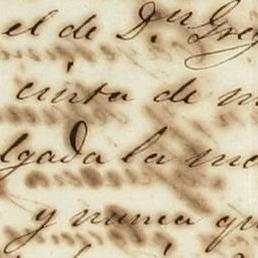 el de D.n Greg
cinta de m
lgada la me
y nunca qu